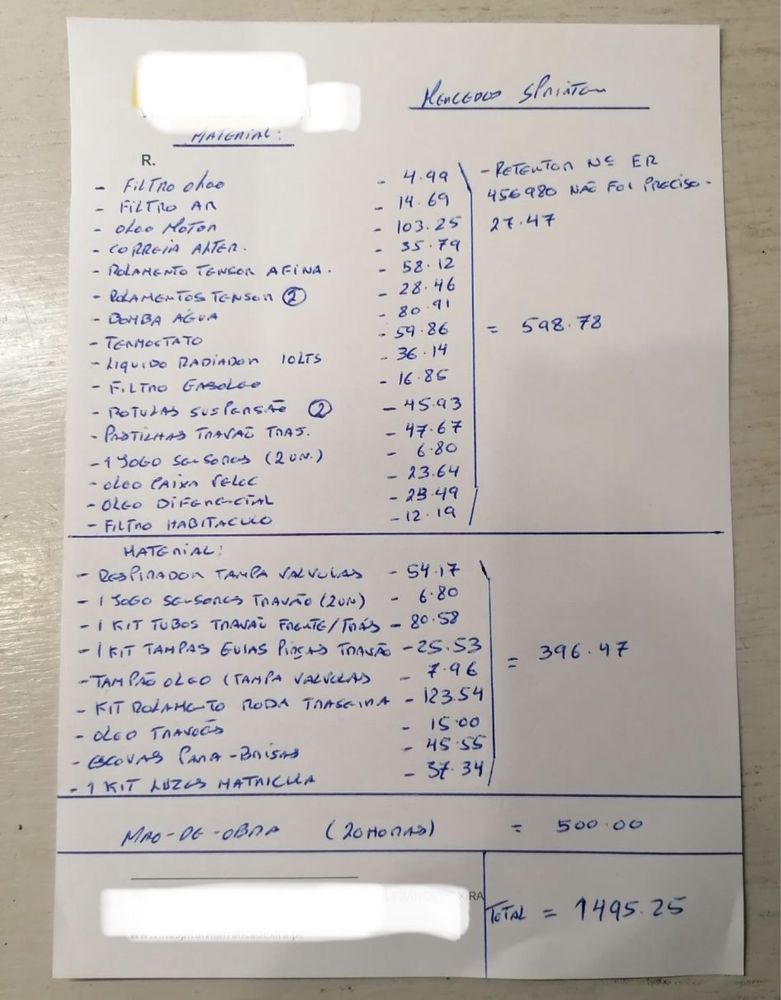 MERCEDES SPRINTER
MATERIAL:
R.
- FILTRO OLEO - 4.99
- FILTRO AR - 14.69
- OLEO MOTOR - 103.25
- CORREIA ALTER. - 35.79
- ROLAMENTO TENSOR AFINA. - 58.12
- ROLAMENTOS TENSOR (2) - 28.46
- BOMBA AGUA - 80.91
- TERMOSTATO - 59.86
- LIQUIDO RADIADOR 10LTS - 36.14
- FILTRO GASOLEO - 16.85
- ROTULAS SUSPENSÃO (2) - 45.93
- PASTILHAS TRAVÃO TRAS. - 47.67
- 1 JOGO SENSORES (2UN.) - 6.80
- OLEO CAIXA VELOC - 23.64
- OLEO DIFERENCIAL - 23.49
- FILTRO HABITACULO - 12.19
- RETENTOR Nº ER
456980 NÃO FOI PRECISO -
27.47
= 598.78
MATERIAL:
- RESPIRADOR TAMPA VALVULAS - 54.17
- 1 JOGO SENSORES TRAVÃO (2UN) - 6.80
- 1 KIT TUBOS TRAVÃO FRENTE/TRÁS - 80.58
- 1 KIT TAMPAS GUIAS PINÇAS TRAVÃO - 25.53
- TAMPÃO OLEO (TAMPA VALVULAS - 7.96
- KIT ROLAMENTO RODA TRASEIRA - 123.54
- OLEO TRAVÕES - 15.00
- ESCOVAS PARA-BRISAS - 45.55
- 1 KIT LUZES MATRICULA - 37.34
= 396.47
MAO-DE-OBRA (20HORAS) = 500.00
TOTAL = 1495.25